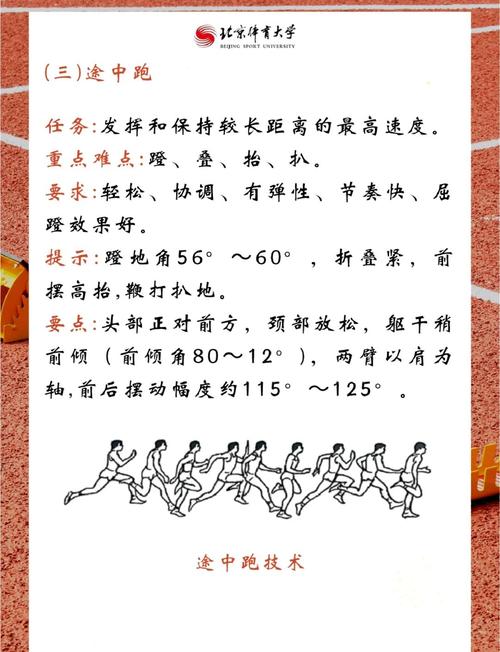 北京体育大学
BEIJING SPORT UNIVERSITY
(三)途中跑
任务:发挥和保持较长距离的最高速度。
重点难点:蹬、叠、抬、扒。
要求:轻松、协调、有弹性、节奏快、屈
蹬效果好。
提示:蹬地角56°～60°，折叠紧，前
摆高抬,鞭打扒地。
要点:头部正对前方，颈部放松，躯干稍
前倾（前倾角80～12°），两臂以肩为
轴,前后摆动幅度约115°～125°。
途中跑技术